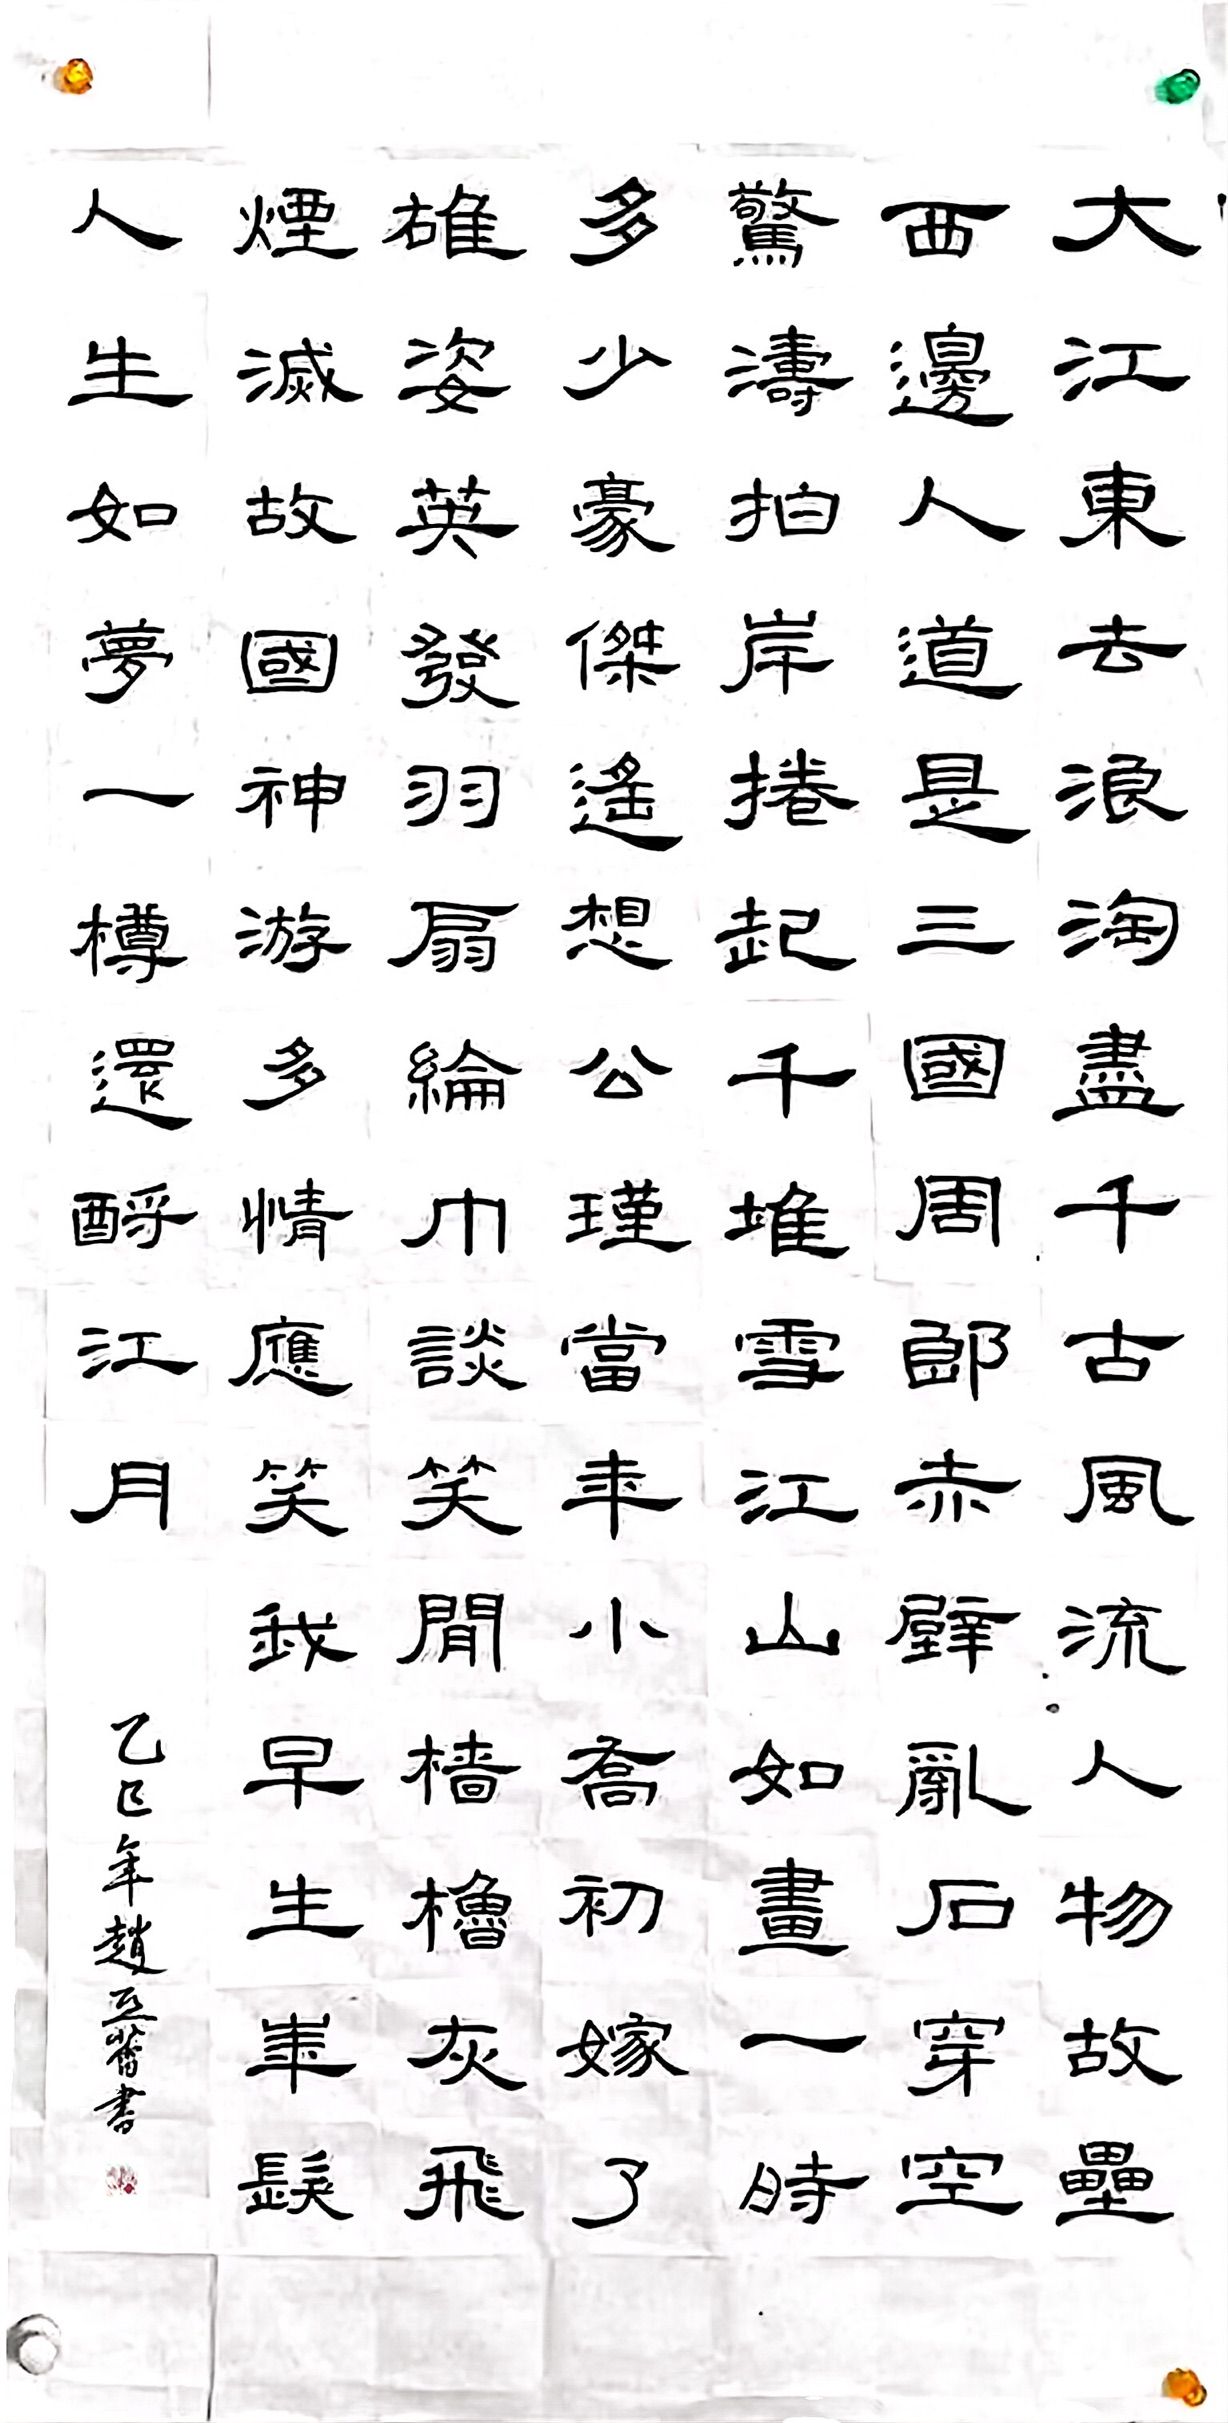 大江東去浪淘盡千古風流人物故壘
西邊人道是三國周郎赤壁亂石穿空
驚濤拍岸捲起千堆雪江山如畫一時
多少豪傑遙想公瑾當年小喬初嫁了
雄姿英發羽扇綸巾談笑閒檣櫓灰飛
煙滅故國神游多情應笑我早生華髮
人生如夢一樽還酹江月
乙巳年趙書